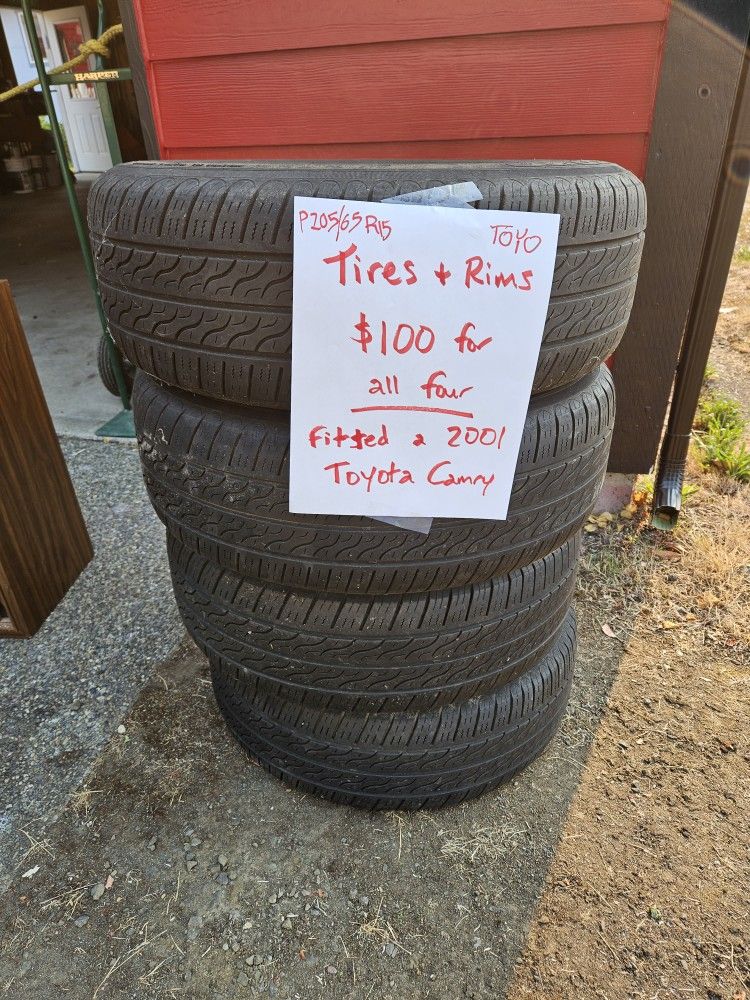 HARPER
P205/65 R15 TOYO
Tires + Rims
$100 for
all four
Fitted a 2001
Toyota Camry